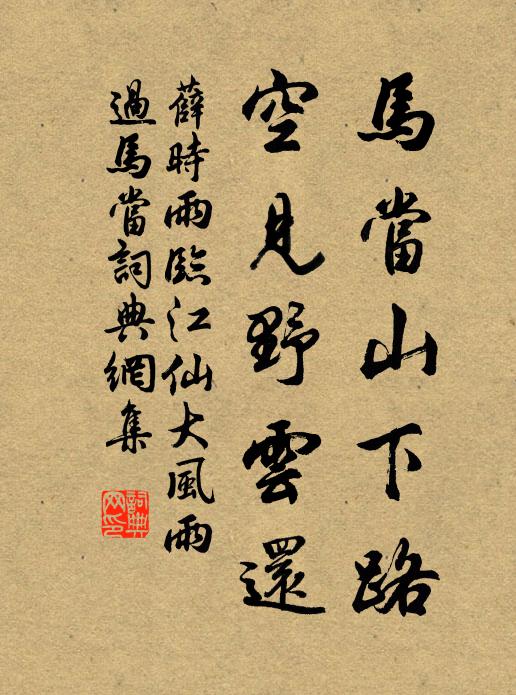 馬當山下路
空見野雲還
薛時雨臨江仙大風雨
過馬當詞典網集
詞典
网印